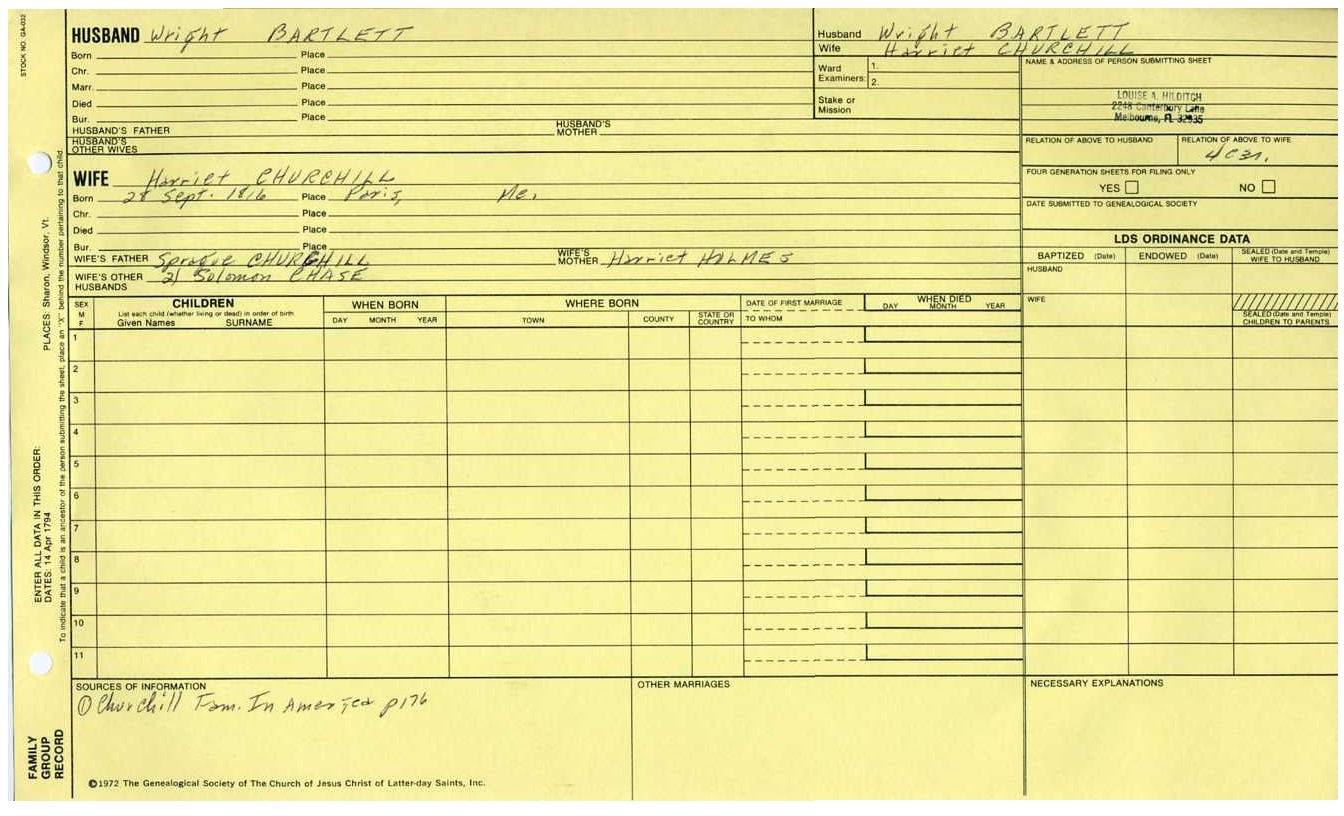 STOCK NO. GA-032
HUSBAND Wright BARTLETT
Born Place
Chr. Place
Marr. Place
Died Place
Bur. Place
HUSBAND'S FATHER HUSBAND'S MOTHER
HUSBAND'S OTHER WIVES
Husband Wright BARTLETT
Wife Harriet CHURCHILL
Ward Examiners: 1.
2.
Stake or Mission
NAME & ADDRESS OF PERSON SUBMITTING SHEET
LOUISE A. HILDITCH
2248 Canterbury Lane
Melbourne, FL 32935
RELATION OF ABOVE TO HUSBAND RELATION OF ABOVE TO WIFE
FOUR GENERATION SHEETS FOR FILING ONLY
YES NO
DATE SUBMITTED TO GENEALOGICAL SOCIETY
WIFE Harriet CHURCHILL
Born 28 Sept. 1816 Place Paris, Me.
Chr. Place
Died Place
Bur. Place
WIFE'S FATHER Sprague CHURCHILL WIFE'S MOTHER Harriet HOLMES
WIFE'S OTHER HUSBANDS 2) Solomon CHASE
LDS ORDINANCE DATA
BAPTIZED (Date) ENDOWED (Date) SEALED (Date and Temple) WIFE TO HUSBAND
HUSBAND
WIFE
SEALED (Date and Temple) CHILDREN TO PARENTS
SEX M F
CHILDREN
List each child (whether living or dead) in order of birth
Given Names SURNAME
WHEN BORN
DAY MONTH YEAR
WHERE BORN
TOWN COUNTY STATE OR COUNTRY
DATE OF FIRST MARRIAGE
TO WHOM
WHEN DIED
DAY MONTH YEAR
1
2
3
4
5
6
7
8
9
10
11
SOURCES OF INFORMATION
① Churchill Fam. In America p176
OTHER MARRIAGES
NECESSARY EXPLANATIONS
©1972 The Genealogical Society of The Church of Jesus Christ of Latter-day Saints, Inc.
PLACES: Sharon, Windsor, Vt.
ENTER ALL DATA IN THIS ORDER:
DATES: 14 Apr 1794
To indicate that a child is an ancestor of the person submitting the sheet, place an "X" behind the number pertaining to that child.
FAMILY
GROUP
RECORD